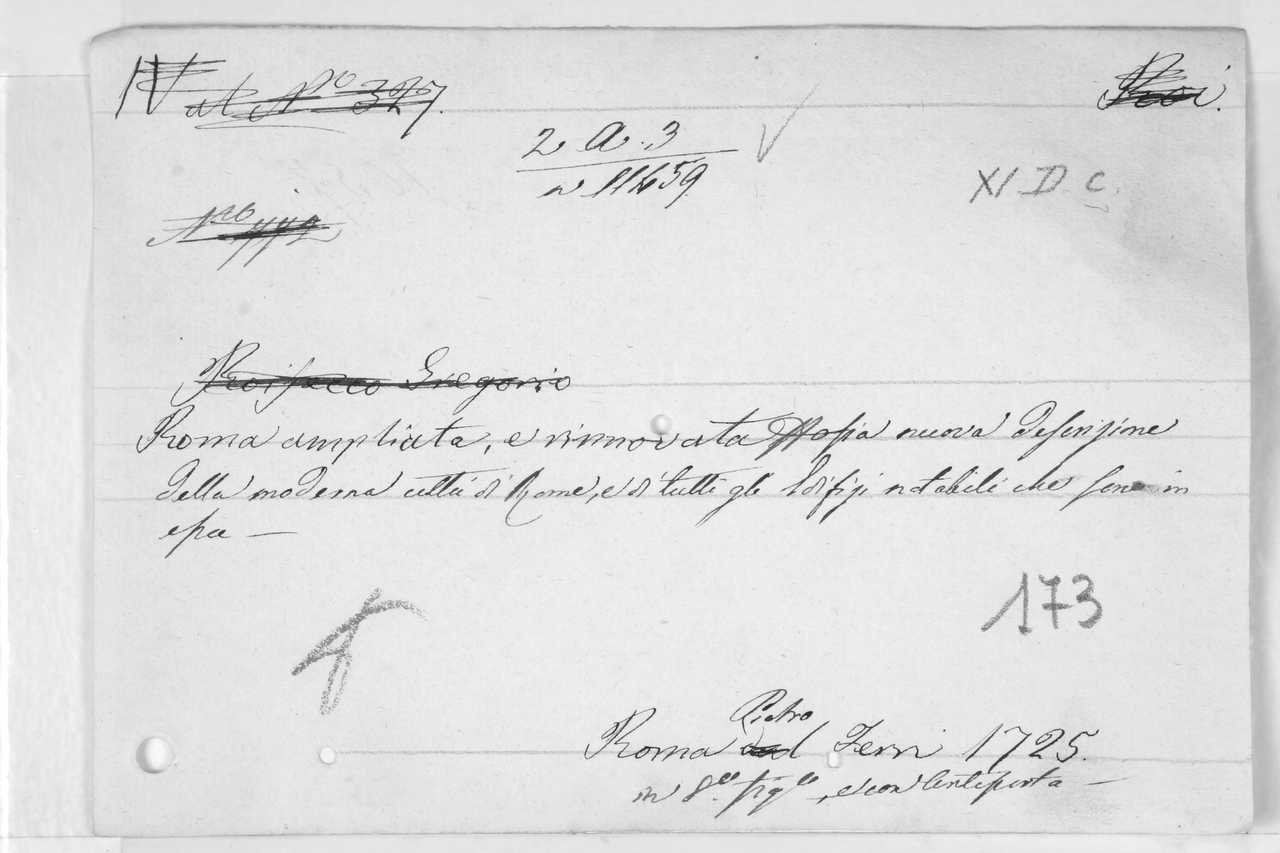 IV al Nº 327.
2 A. 3
n 11659
XI D c.
Nº 772
Gregorio
Roma ampliata, e rinnovata ossia nuova descrizione
della moderna città di Rome, e di tutti gli Edifizi notabili che sono in
essa —
173
Pietro
Roma Ferri 1725.
in 8º fig.to, e con Antiporta —